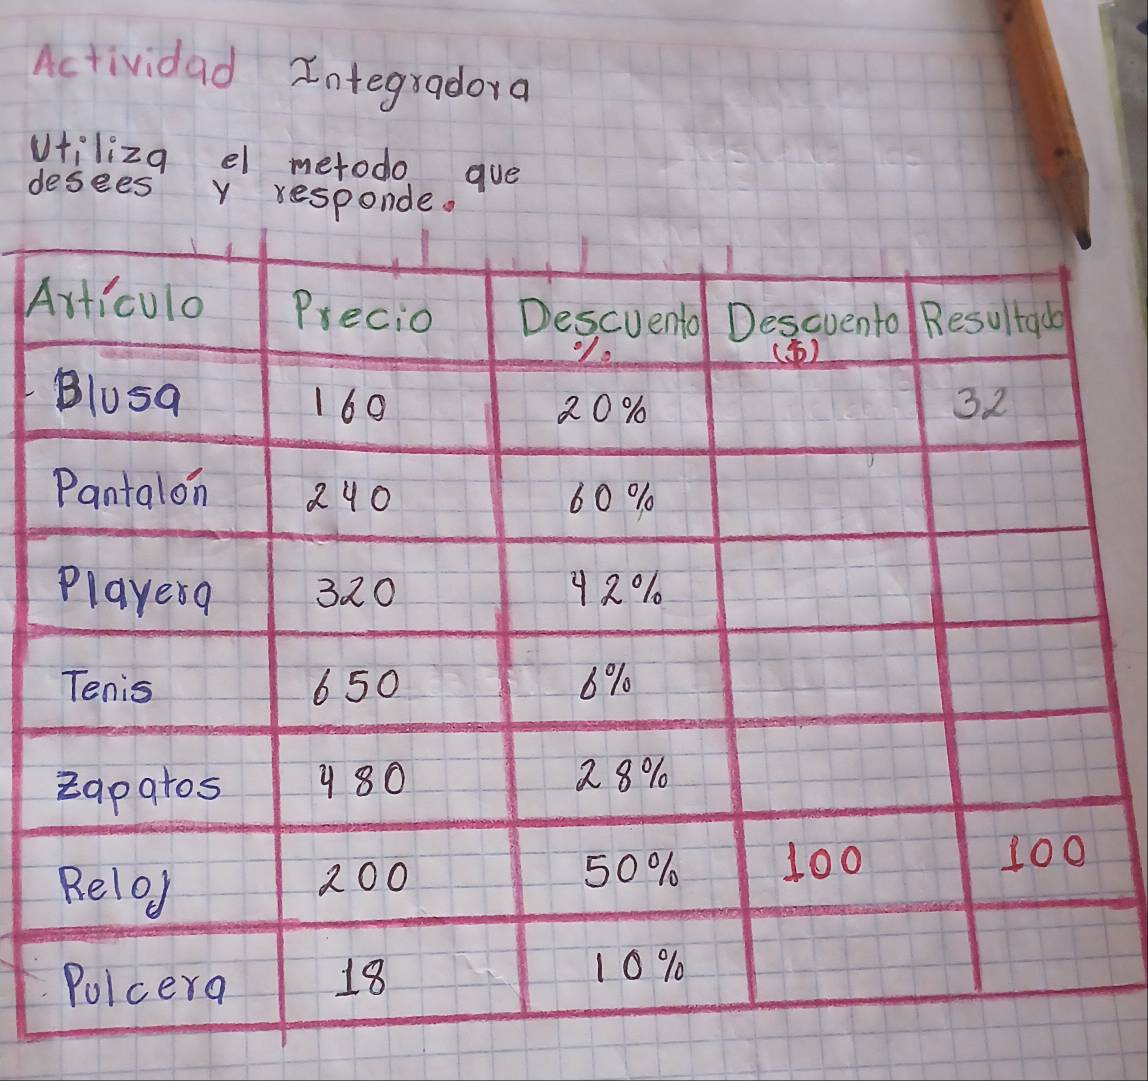 Actividad Integradora
Utiliza el metodo que
desees y responde.
Artículo Precio Descuento % Descuento ($) Resultado
Blusa 160 20% 32
Pantalón 240 60%
Playera 320 42%
Tenis 650 6%
Zapatos 480 28%
Reloj 200 50% 100 100
Pulcera 18 10%